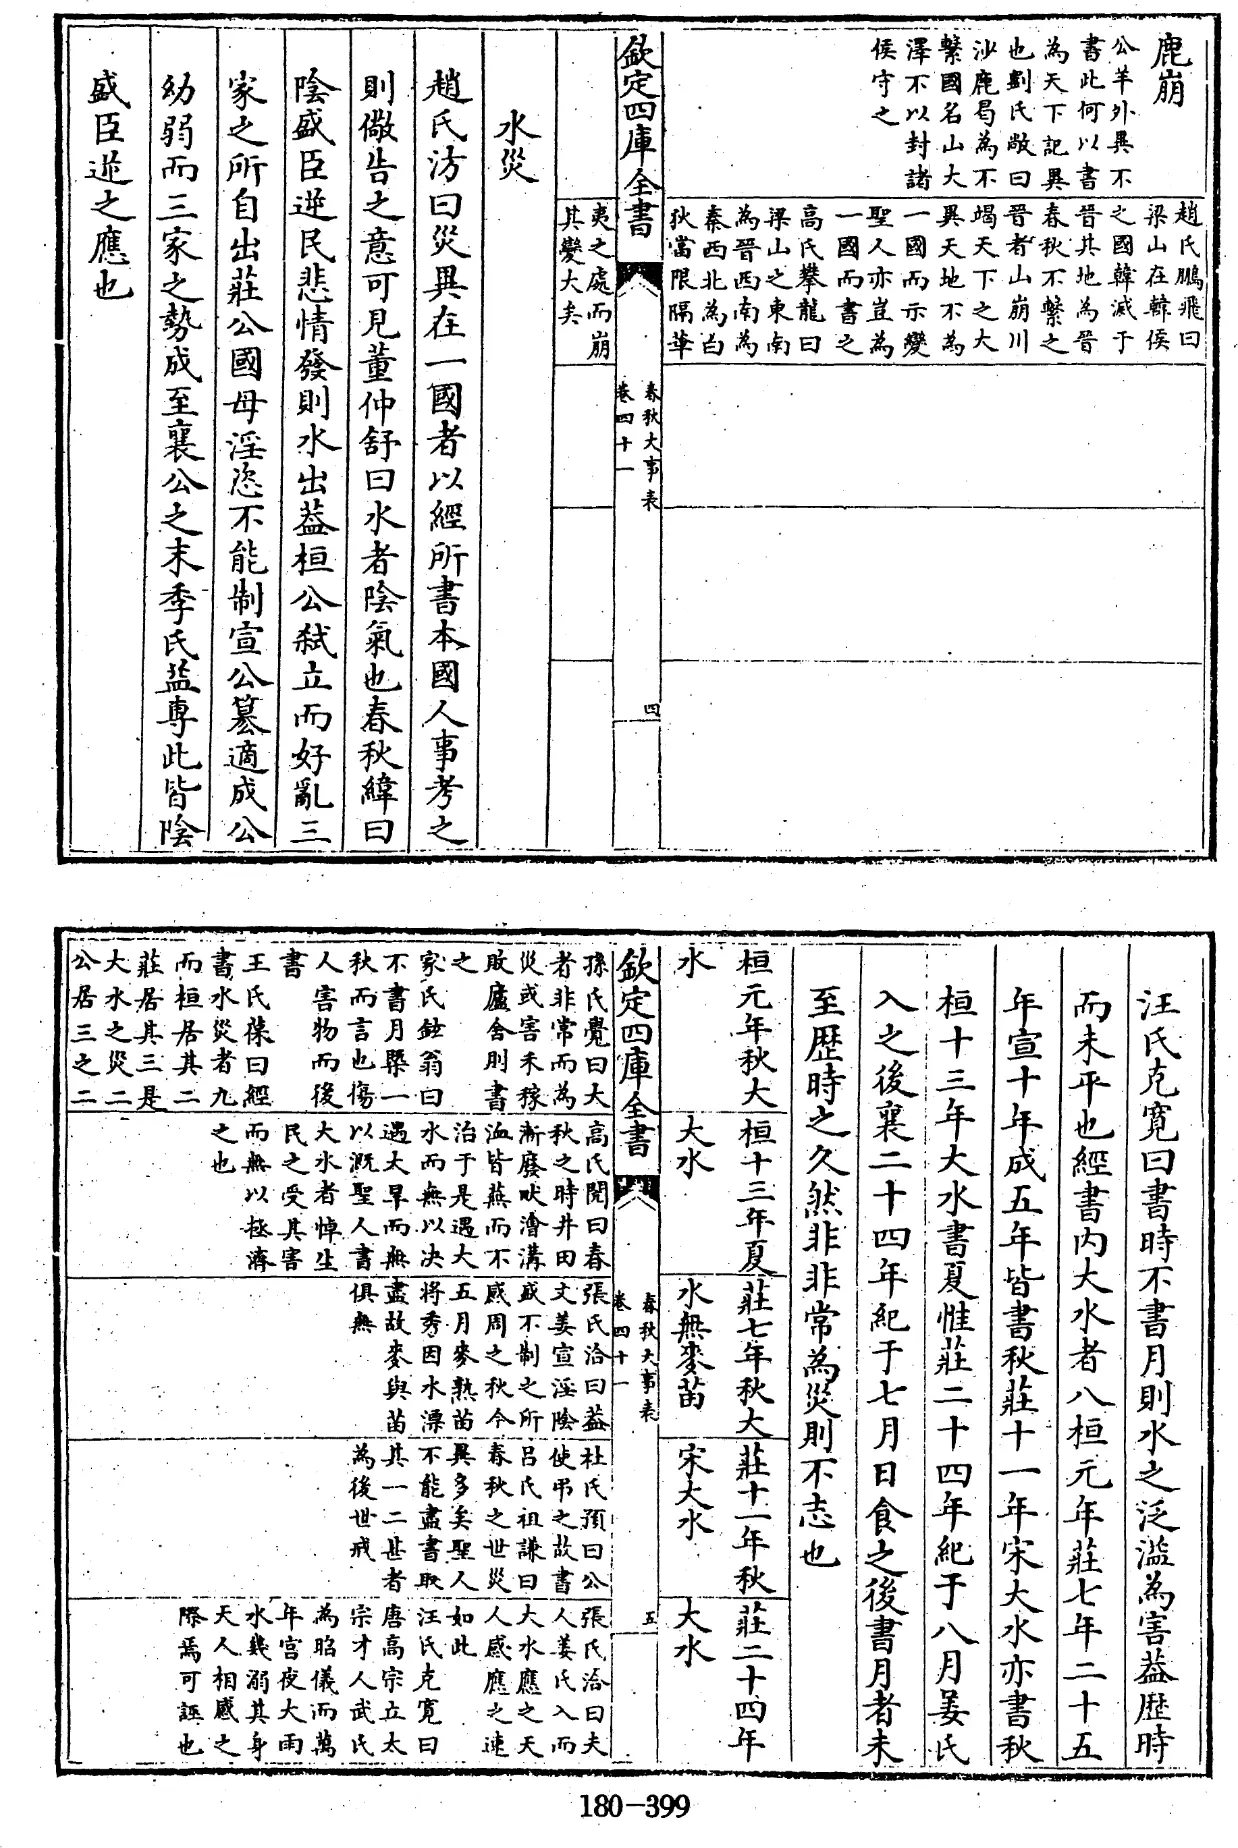 鹿崩
公羊外異不
書此何以書
為天下記異
也劉氏敞曰
沙鹿曷為不
繫國名山大
澤不以封諸
侯守之
趙氏鵬飛曰
梁山在韓侯
之國韓滅于
晉其地為晉
春秋不繫之
晉者山崩川
竭天下之大
異天地不為
一國而示變
聖人亦豈為
一國而書之
高氏攀龍曰
梁山之東南
為晉西南為
秦西北為白
狄當限隔華
夷之處而崩
其變大矣
欽定四庫全書
春秋大事表
卷四十一
四
水災
趙氏汸曰災異在一國者以經所書本國人事考之
則儆告之意可見董仲舒曰水者陰氣也春秋緯曰
陰盛臣逆民悲情發則水出葢桓公弑立而好亂三
家之所自出莊公國母淫恣不能制宣公簒適成公
幼弱而三家之勢成至襄公之末季氏益專此皆陰
盛臣逆之應也
汪氏克寛曰書時不書月則水之泛溢為害葢歴時
而未平也經書内大水者八桓元年莊七年二十五
年宣十年成五年皆書秋莊十一年宋大水亦書秋
桓十三年大水書夏惟莊二十四年紀于八月姜氏
入之後襄二十四年紀于七月日食之後書月者未
至歴時之久然非非常為災則不志也
桓元年秋大
水
桓十三年夏
大水
莊七年秋大
水無麥苗
莊十一年秋
宋大水
莊二十四年
大水
欽定四庫全書
春秋大事表
卷四十一
五
孫氏覺曰大
者非常而為
災或害禾稼
敗廬舍則書
之
家氏鉉翁曰
不書月槩一
秋而言也傷
人害物而後
書
王氏葆曰經
書水災者九
而桓居其二
莊居其三是
大水之災二
公居三之二
高氏閌曰春
秋之時井田
漸廢畎澮溝
洫皆蕪而不
治于是遇大
水而無以决
遇大旱而無
以溉聖人書
大水者悼生
民之受其害
而無以拯濟
之也
張氏洽曰葢
文姜宣淫陰
盛不制之所
感周之秋今
五月麥熟苗
將秀因水漂
盡故麥與苗
俱無
杜氏預曰公
使弔之故書
吕氏祖謙曰
春秋之世災
異多矣聖人
不能盡書取
其一二甚者
為後世戒
張氏洽曰夫
人姜氏入而
大水應之天
人感應之速
如此
汪氏克寛曰
唐高宗立太
宗才人武氏
為昭儀而萬
年宫夜大雨
水幾溺其身
天人相感之
際焉可誣也
180-399